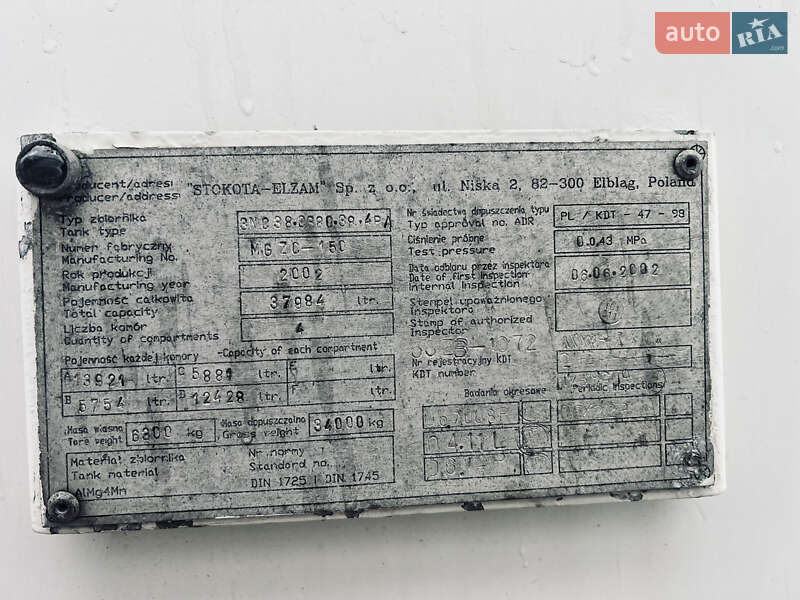 auto RIA .com
Producent/adres:
Producer/address:
"STOKOTA-ELZAM" Sp. z o.o., ul. Niska 2, 82-300 Elbląg, Poland
Typ zbiornika
Tank type
Numer fabryczny
Manufacturing No.
MG ZC-150
Rok produkcji
Manufacturing year
2002
Pojemność całkowita
Total capacity
37984 ltr.
Liczba komór
Quantity of compartments
4
Pojemność każdej komory -Capacity of each compartment
A 13921 ltr. C 5881 ltr. E ltr.
B 5754 ltr. D 12428 ltr. F ltr.
Masa własna
Tare weight
6300 kg
Masa dopuszczalna
Gross weight
34000 kg
Materiał zbiornika
Tank material
AlMg4Mn
Nr normy
Standard no.
DIN 1725 i DIN 1745
Nr świadectwa dopuszczenia typu
Typ approval no. ADR
PL / KDT - 47 - 99
Ciśnienie próbne
Test pressure
0.043 MPa
Data odbioru przez inspektora
Date of first inspection
Internal Inspection
06.06.2002
Stempel upoważnionego
inspektora
Stamp of authorized
Inspector
Nr rejestracyjny KDT
KDT number
Badania okresowe
Periodic Inspections